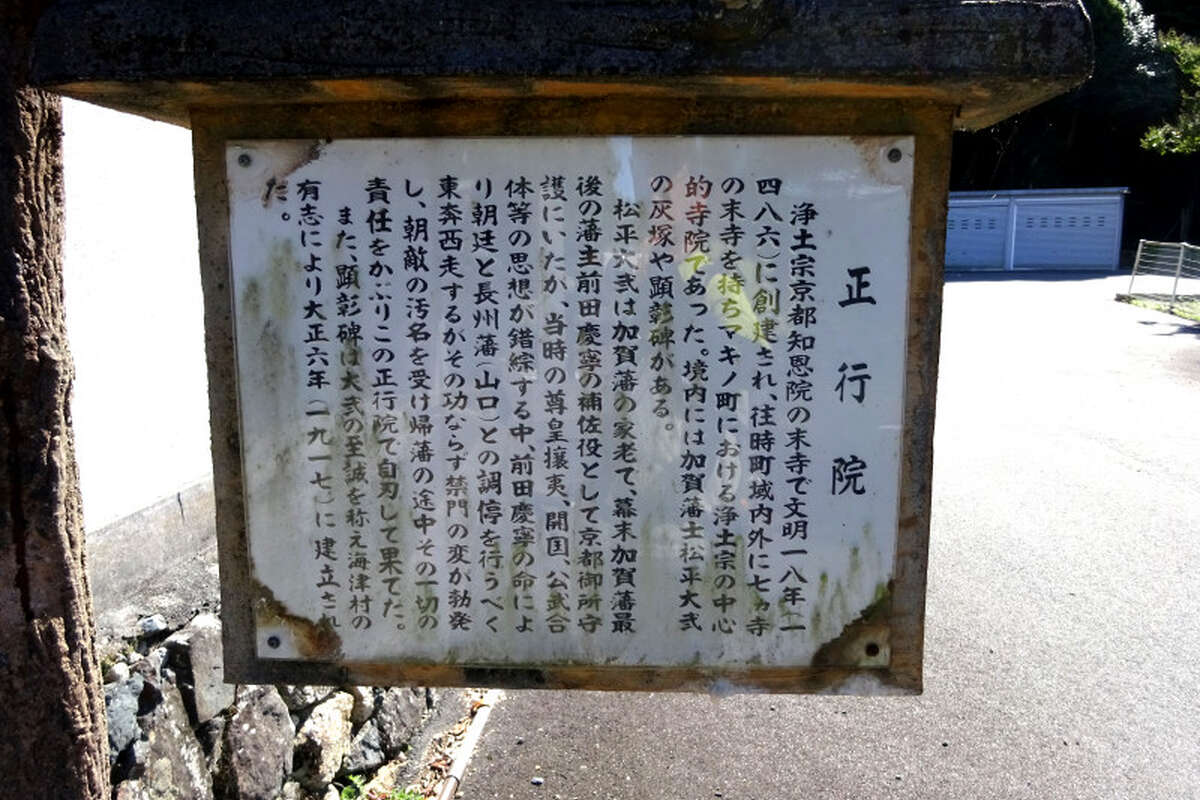 正行院
浄土宗京都知恩院の末寺で文明一八年(一
四八六)に創建され、往時町域内外に七ヵ寺
の末寺を持ちマキノ町における浄土宗の中心
的寺院であった。境内には加賀藩士松平大弐
の灰塚や顕彰碑がある。
松平大弐は加賀藩の家老で、幕末加賀藩最
後の藩主前田慶寧の補佐役として京都御所守
護にいたが、当時の尊皇攘夷、開国、公武合
体等の思想が錯綜する中、前田慶寧の命によ
り朝廷と長州藩(山口)との調停を行うべく
東奔西走するがその功ならず禁門の変が勃発
し、朝敵の汚名を受け帰藩の途中その一切の
責任をかぶりこの正行院で自刃して果てた。
また、顕彰碑は大弐の至誠を称え海津村の
有志により大正六年(一九一七)に建立され
た。